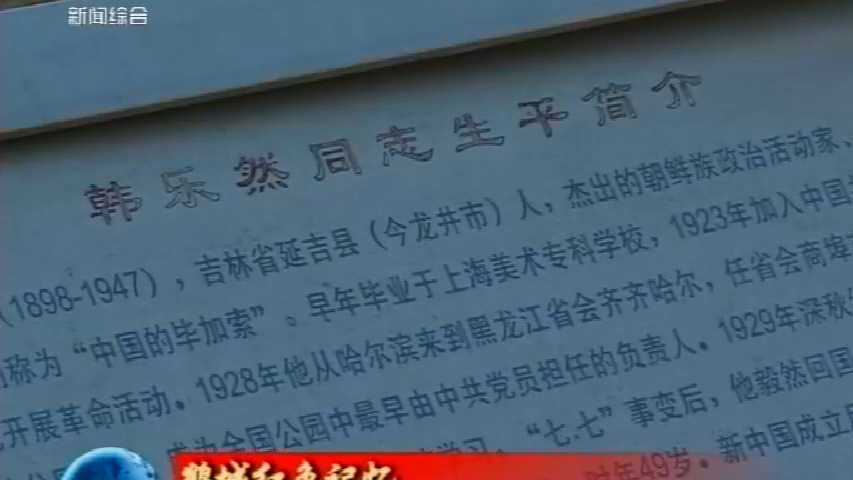 新闻综合
韩乐然同志生平简介
（1898-1947），吉林省延吉县（今龙井市）人，杰出的朝鲜族政治活动家、
称为“中国的毕加索”。早年毕业于上海美术专科学校，1923年加入中国
开展革命活动。1928年他从哈尔滨来到黑龙江省会齐齐哈尔，任省会商埠
成为全国公园中最早由中共党员担任的负责人。1929年深秋
学习。“七·七”事变后，他毅然回国
时年49岁。新中国成立
鹤城红色记忆